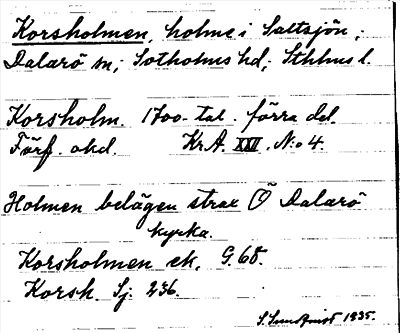 Korsholmen, holme i Saltsjön,
Dalarö sn; Sotholms hd; Sthlms l.
Korsholm. 1700-tal. förra del.
Förf. okd. Kr.A. XXVI. N:o 4.
Holmen belägen strax Ö Dalarö
kyrka.
Korsholmen ek. G.68.
Korsh. Sj. 236.
S. Sundqvist 1935.